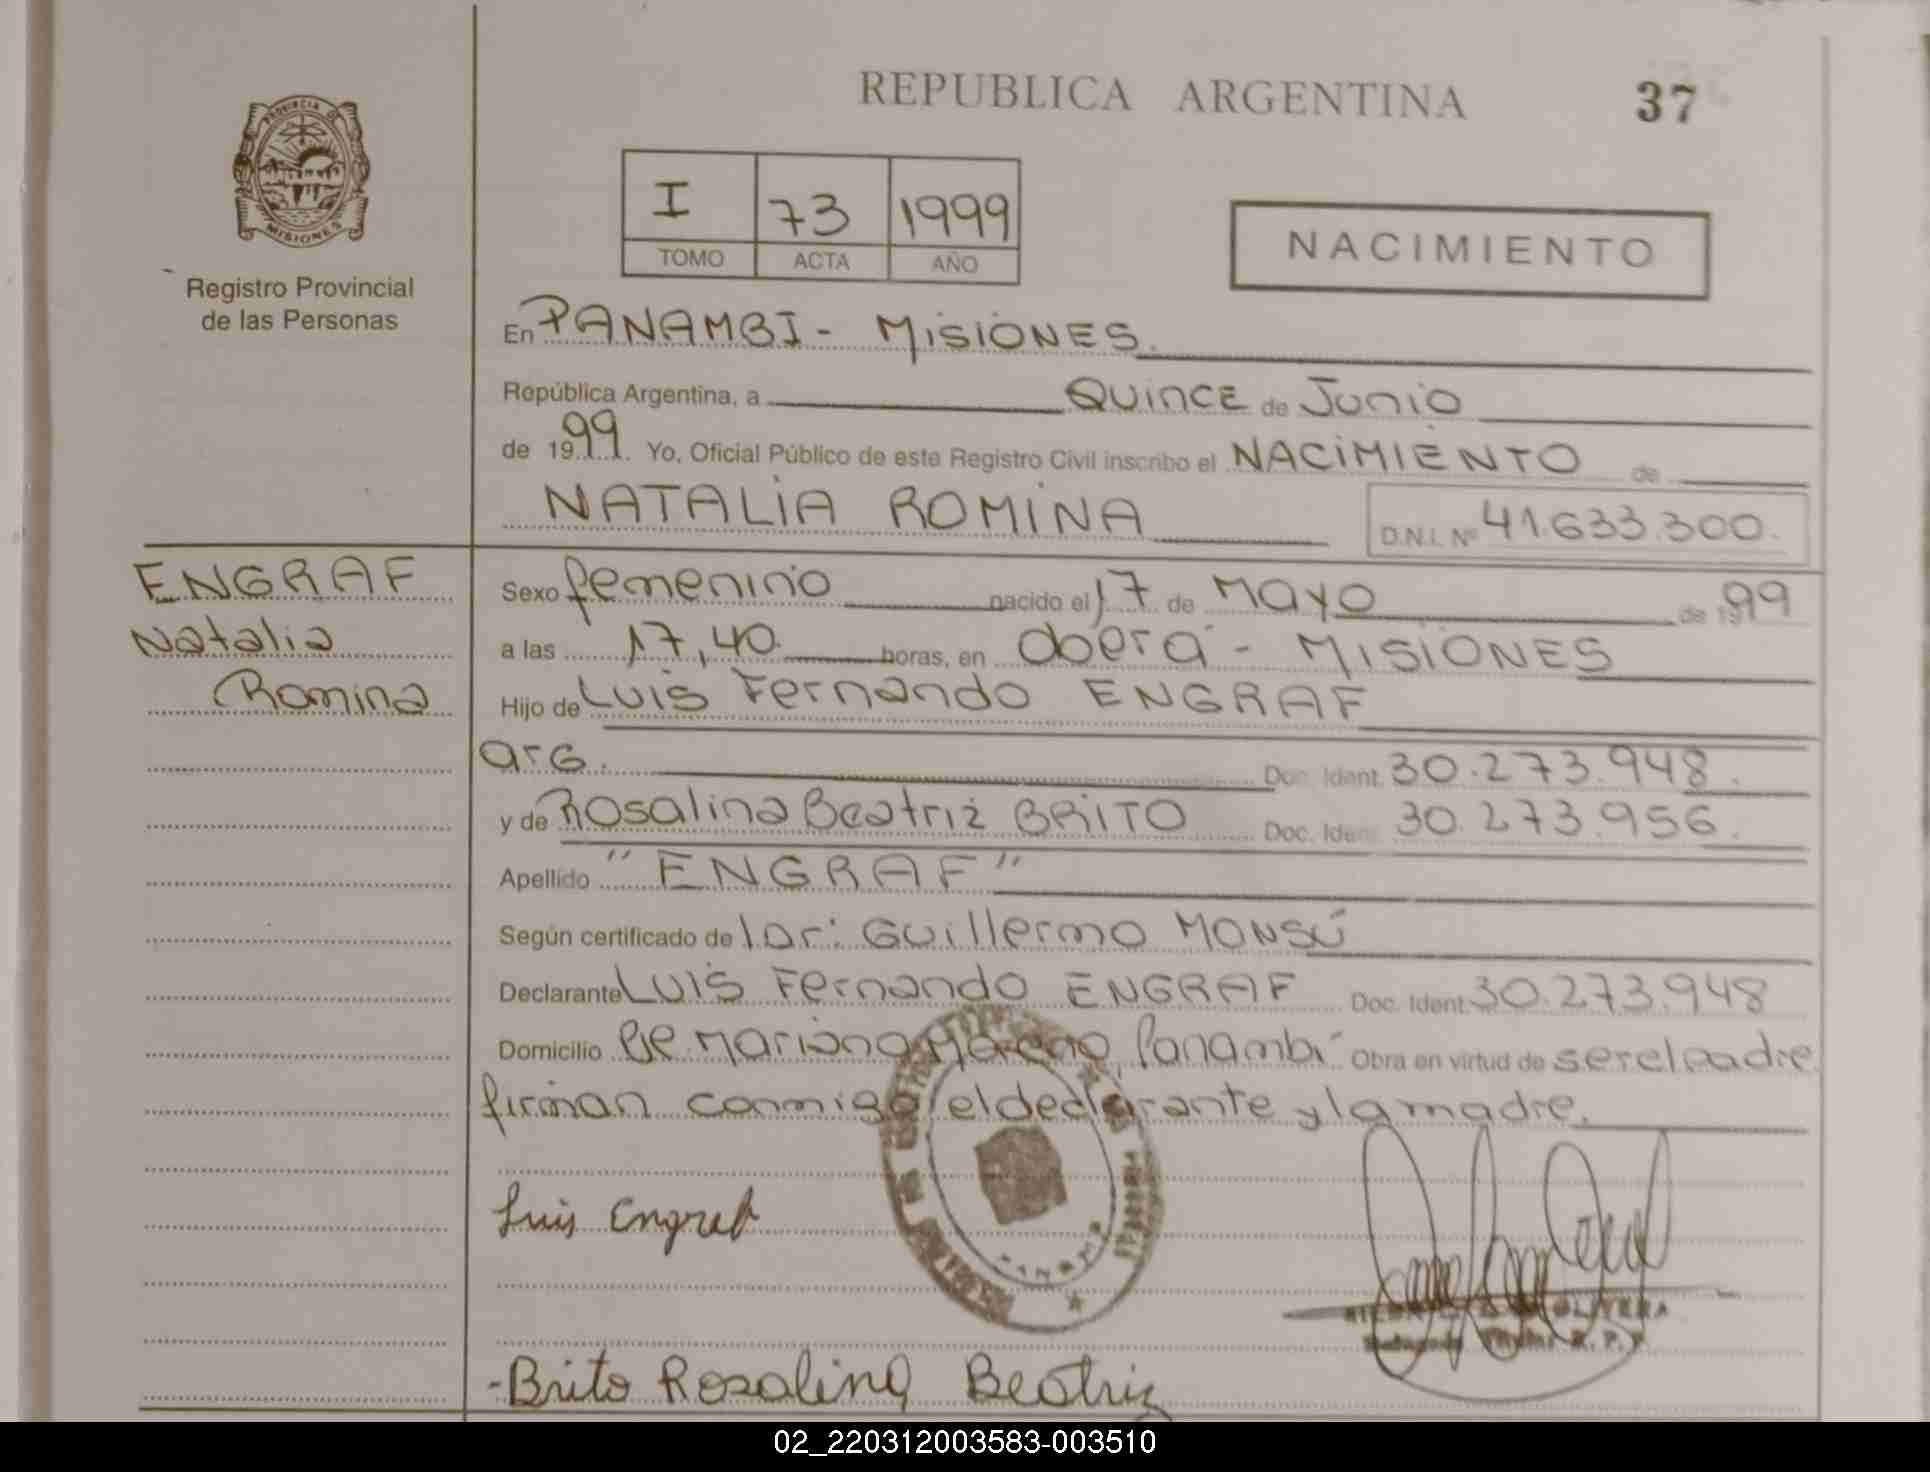 REPUBLICA ARGENTINA 37
PROVINCIA DE
MISIONES
Registro Provincial
de las Personas
I 73 1999
TOMO ACTA AÑO
NACIMIENTO
En PANAMBI - MISIONES.
República Argentina, a Quince de Junio
de 1999. Yo, Oficial Público de este Registro Civil inscribo el NACIMIENTO de
NATALIA ROMINA D.N.I. Nº 41.633.300.
ENGRAF
Natalia
Romina
Sexo femenino nacido el 17 de Mayo de 1999
a las 17,40 horas, en Oberá - MISIONES
Hijo de Luis Fernando ENGRAF
arG. Doc. Ident. 30.273.948.
y de Rosalina Beatriz BRITO Doc. Ident. 30.273.956.
Apellido "ENGRAF"
Según certificado de Guillermo MONSÚ
Declarante Luis Fernando ENGRAF Doc. Ident. 30.273.948
Domicilio Mariano Moreno Panambí Obra en virtud de ser el padre
firman conmigo el declarante y la madre.
Luis Engraf
OLIVERA
-Brito Rosalina Beatriz
02_220312003583-003510